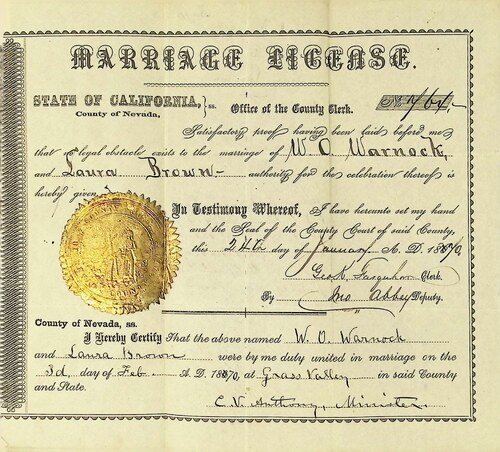 MARRIAGE LICENSE.
STATE OF CALIFORNIA, } ss. Office of the County Clerk.
County of Nevada,
Satisfactory proof having been laid before me
that no legal obstacle exists to the marriage of W. O. Warnock,
and Laura Brown— authority for the celebration thereof is
hereby given.
In Testimony Whereof, I have hereunto set my hand
and the Seal of the County Court of said County,
this 24th day of January A. D. 1870,
Geo. K. Farquhar Clerk.
By Jno Abbey Deputy.
County of Nevada, ss.
I Hereby Certify That the above named W. O. Warnock
and Laura Brown were by me duly united in marriage on the
3d, day of Feb A. D. 1870, at Grass Valley in said County
and State.
C. V. Anthony, Minister.